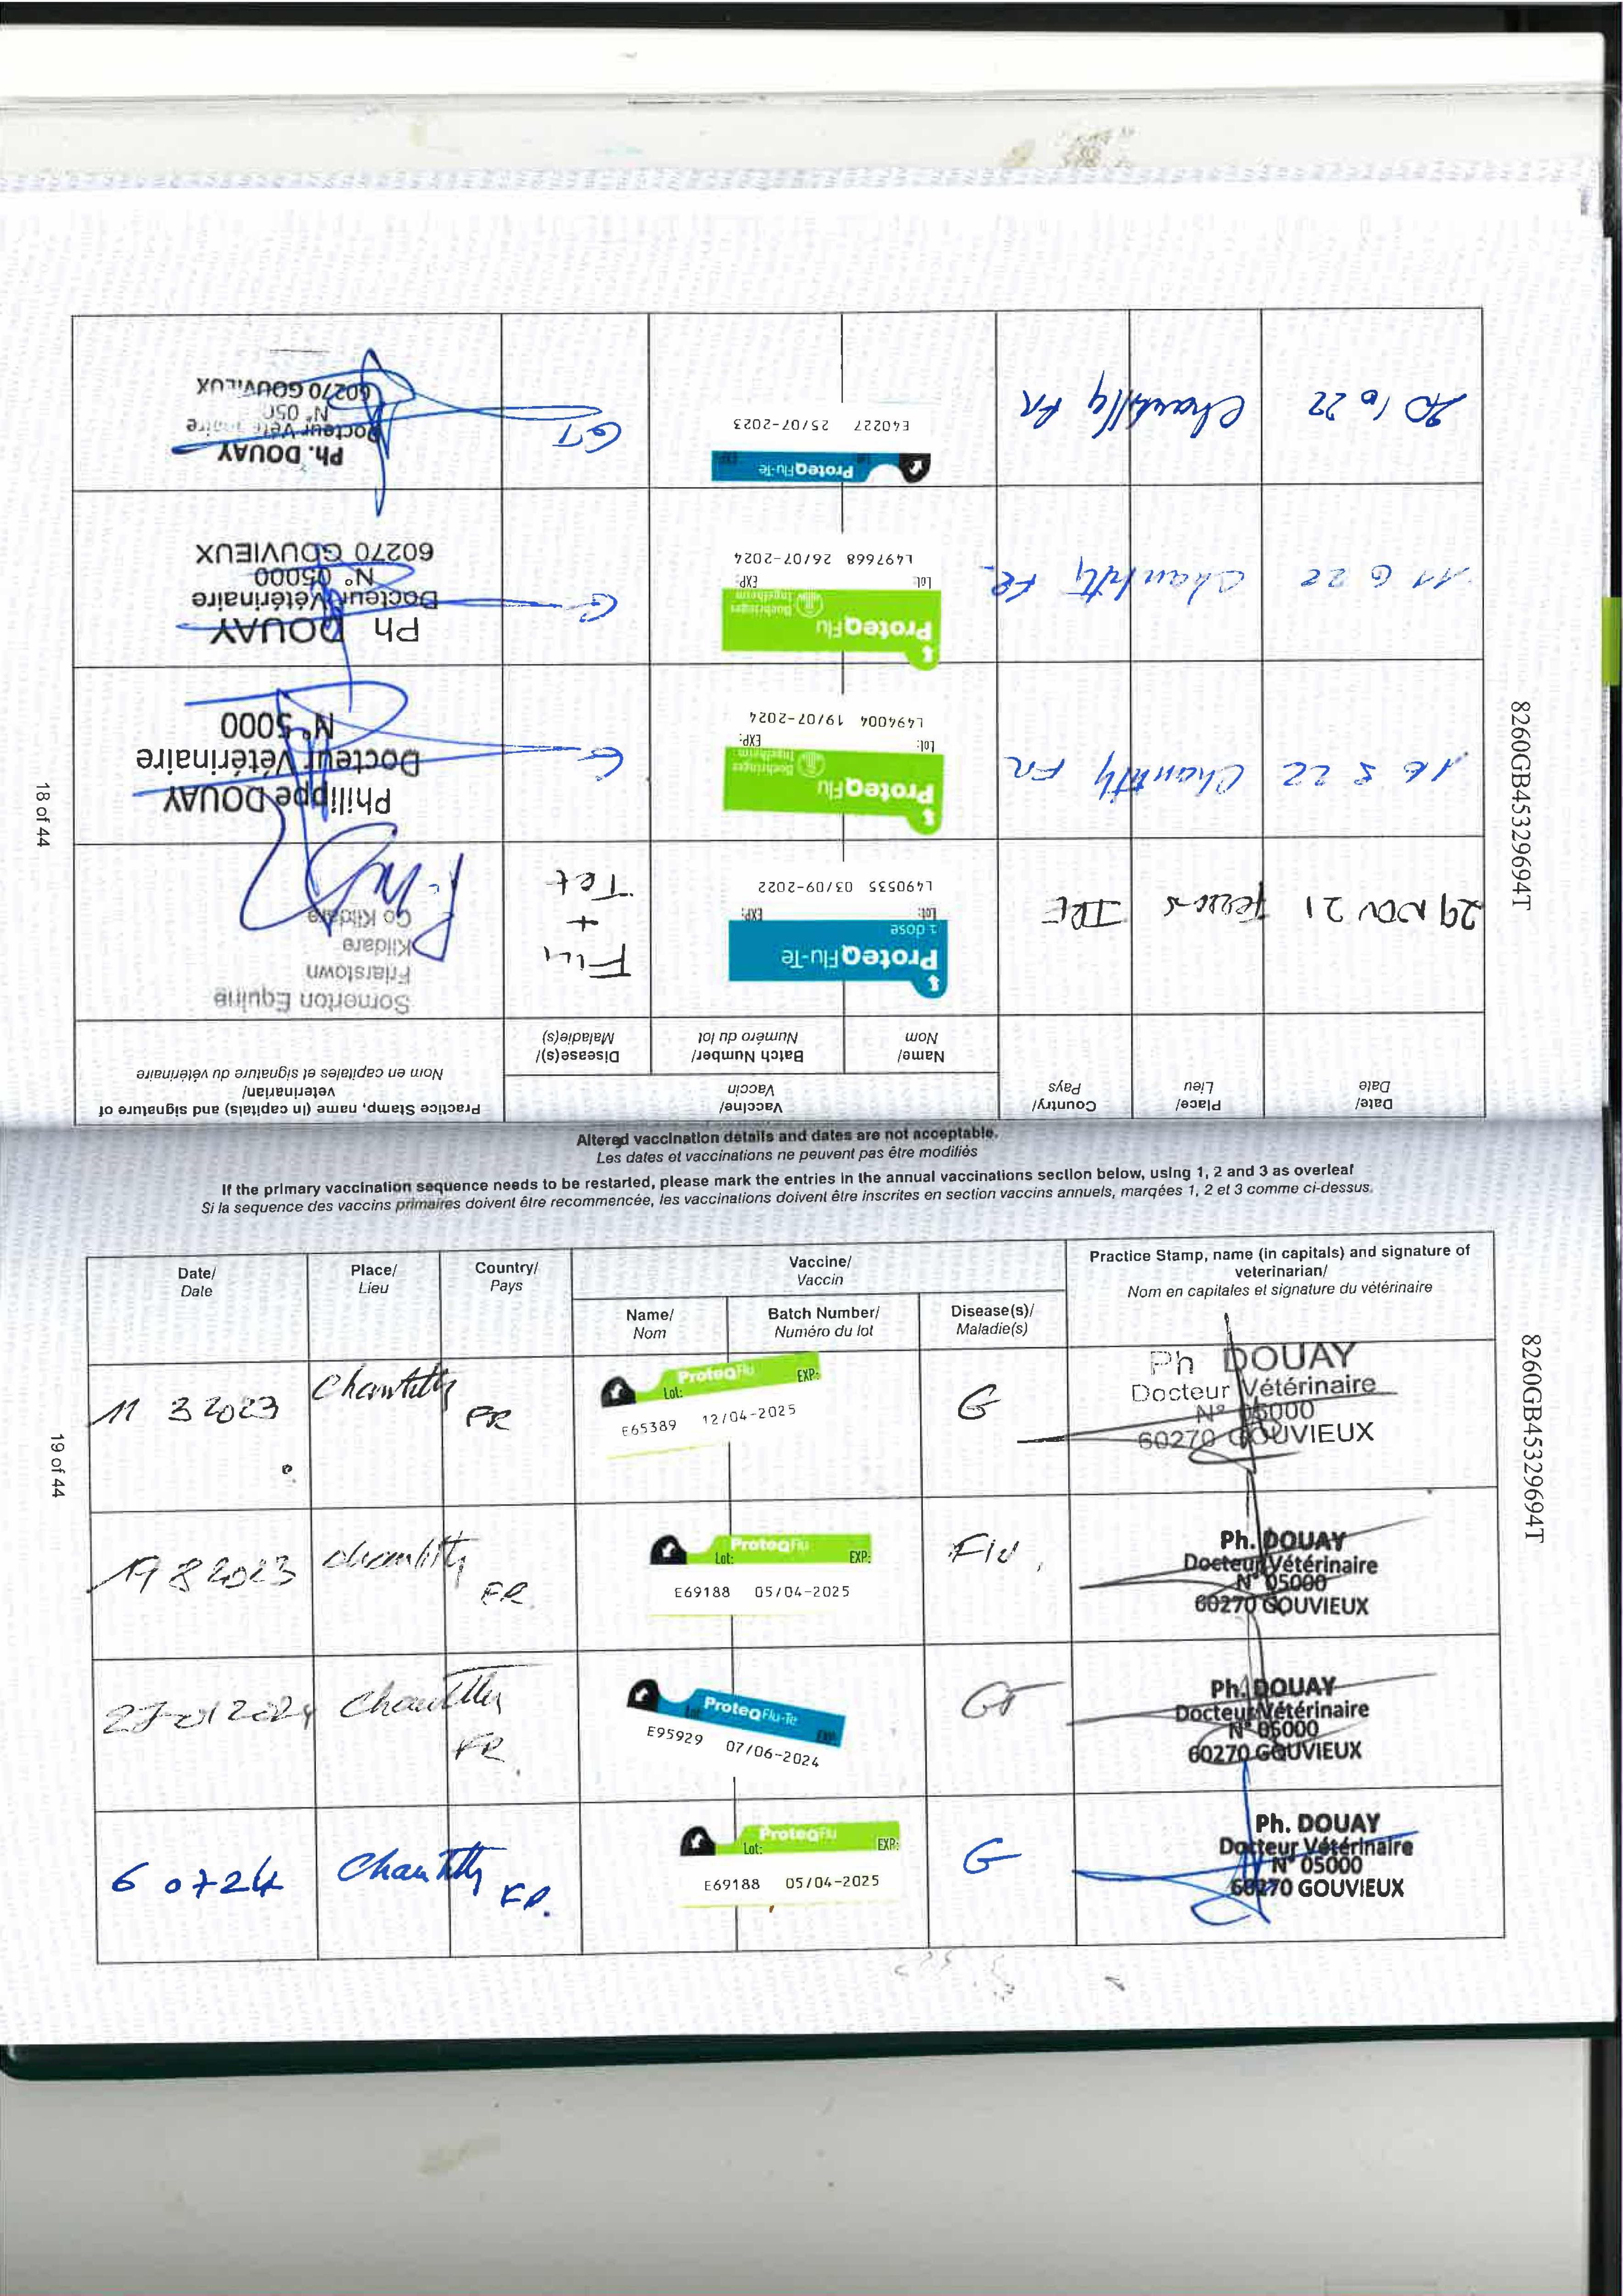 18 of 44
8260GB45329694T
Date/
Date
Place/
Lieu
Country/
Pays
Vaccine/
Vaccin
Name/
Nom
Batch Number/
Numéro du lot
Disease(s)/
Maladie(s)
Practice Stamp, name (in capitals) and signature of
veterinarian/
Nom en capitales et signature du vétérinaire
29 NOV 21
IRE
ProteqFlu-Te
1 dose
Lot: EXP:
L490535 03/09-2022
Flu
+
Tet
Somerton Equine
Friarstown
Kildare
Co Kildare
16 5 22 Chantilly FR
ProteqFlu
Boehringer
Ingelheim
Lot: EXP:
L494004 19/07-2024
G
Philippe DOUAY
Docteur Vétérinaire
N° 5000
11 6 22 Chantilly FR.
ProteqFlu
Boehringer
Ingelheim
Lot: EXP:
L497668 26/07-2024
G
Ph DOUAY
Docteur Vétérinaire
N° 05000
60270 GOUVIEUX
20 10 22 Chantilly FR
ProteqFlu-Te
E40227 25/07-2023
GT
Ph. DOUAY
Docteur Vétérinaire
60270 GOUVIEUX
Altered vaccination details and dates are not acceptable.
Les dates et vaccinations ne peuvent pas être modifiés
If the primary vaccination sequence needs to be restarted, please mark the entries in the annual vaccinations section below, using 1, 2 and 3 as overleaf
Si la sequence des vaccins primaires doivent être recommencée, les vaccinations doivent être inscrites en section vaccins annuels, marqées 1, 2 et 3 comme ci-dessus.
Date/
Date
Place/
Lieu
Country/
Pays
Vaccine/
Vaccin
Name/
Nom
Batch Number/
Numéro du lot
Disease(s)/
Maladie(s)
Practice Stamp, name (in capitals) and signature of
veterinarian/
Nom en capitales et signature du vétérinaire
11 3 2023 Chantilly FR
ProteqFlu
Lot: EXP:
E65389 12/04-2025
G
Ph DOUAY
Docteur Vétérinaire
N° 05000
60270 GOUVIEUX
19 8 2023 Chantilly FR.
ProteqFlu
Lot: EXP:
E69188 05/04-2025
Flu.
Ph. DOUAY
Docteur Vétérinaire
N° 05000
60270 GOUVIEUX
27 01 2024 Chantilly FR.
ProteqFlu-Te
Lot: EXP:
E95929 07/06-2024
GT
Ph. DOUAY
Docteur Vétérinaire
N° 05000
60270 GOUVIEUX
6 07 24 Chantilly FR.
ProteqFlu
Lot: EXP:
E69188 05/04-2025
G
Ph. DOUAY
Docteur Vétérinaire
N° 05000
60270 GOUVIEUX
19 of 44
8260GB45329694T